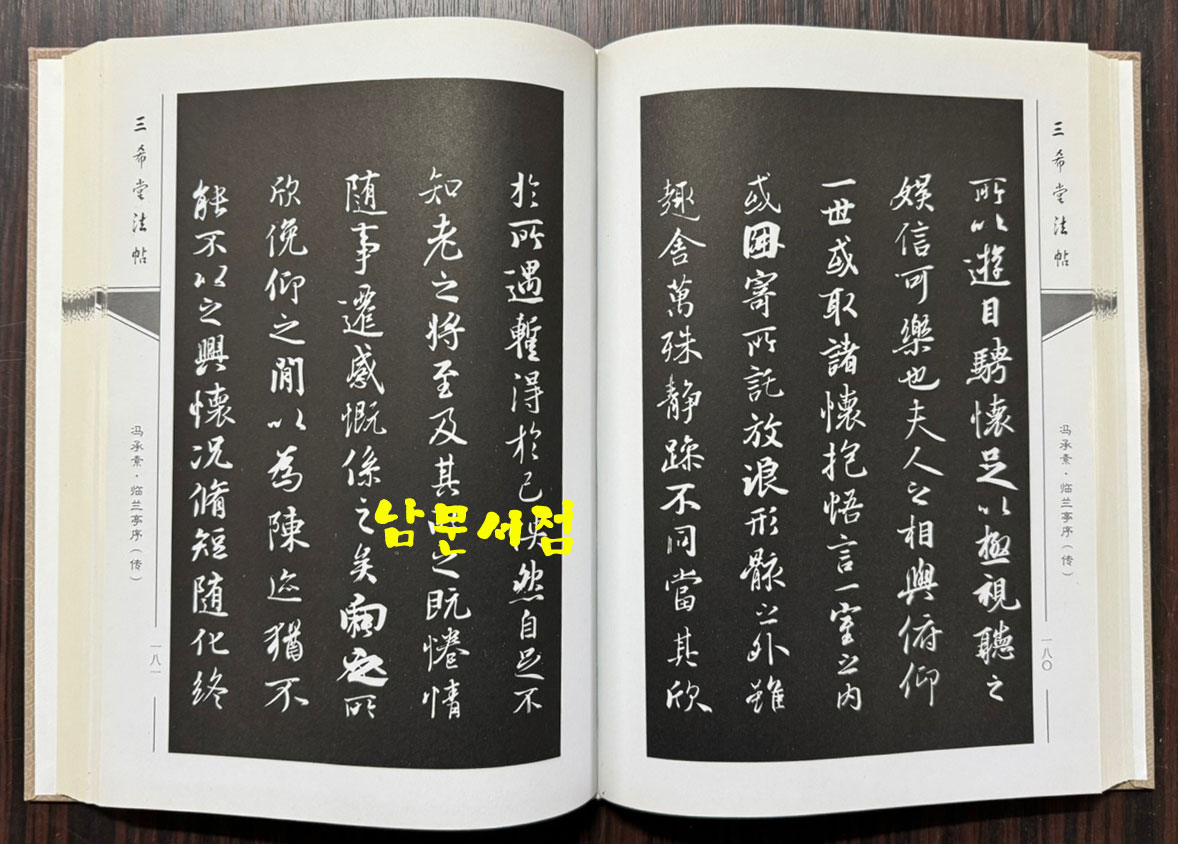 三希堂法帖
冯承素·临兰亭序(传)
一八〇
所以遊目騁懷足以極視聽之
娛信可樂也夫人之相與俯仰
一世或取諸懷抱悟言一室之內
或因寄所託放浪形骸之外雖
趣舍萬殊静躁不同當其欣
於所遇蹔得於己然自足不
知老之將至及其之既惓情
隨事遷感慨係之矣向之所
欣俛仰之閒以為陳迹猶不
能不以之興懷況脩短隨化終
三希堂法帖
冯承素·临兰亭序(传)
一八一
남문서점